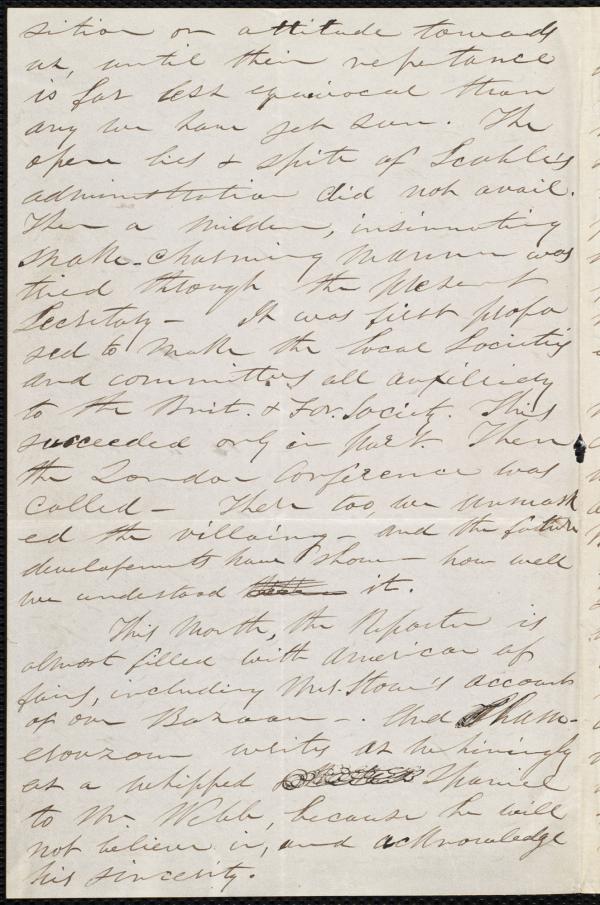 sition or attitude towards
us, until their repentance
is far less equivocal than
any we have yet seen. The
open lies & spite of Scoble's
administration did not avail.
Then a milder, insinuating
snake-charming manner was
tried through the present
Secretary— It was first propo
sed to make the local Societies
and committees all auxiliary
to the Brit. & For. Society. This
succeeded only in part. Then
the London Conference was
called— There too, we unmask
ed the villainy— and the future
developements have shown— how well
we understood it.
This Month, the Reporter is
almost filled with American af
fairs, including Mrs. Stowe's account
of our Bazaar—. And Cham-
erovzow writes as whiningly
as a whipped Spaniel
to Mr. Webb, because he will
not believe in, and acknowledge
his sincerity.